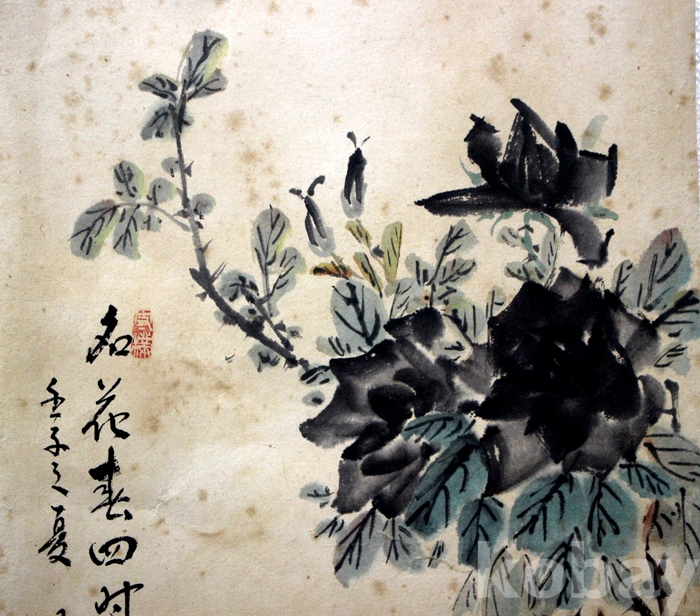 名花春四时
壬子之夏
kobay